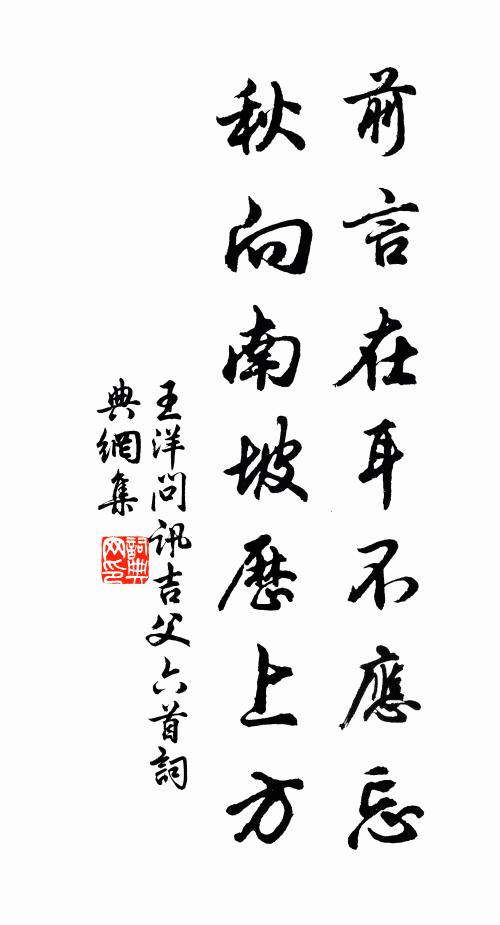 前言在耳不應忘
秋向南坡歷上方
王洋問訊吉父六首詞
典網集
詞典
网印